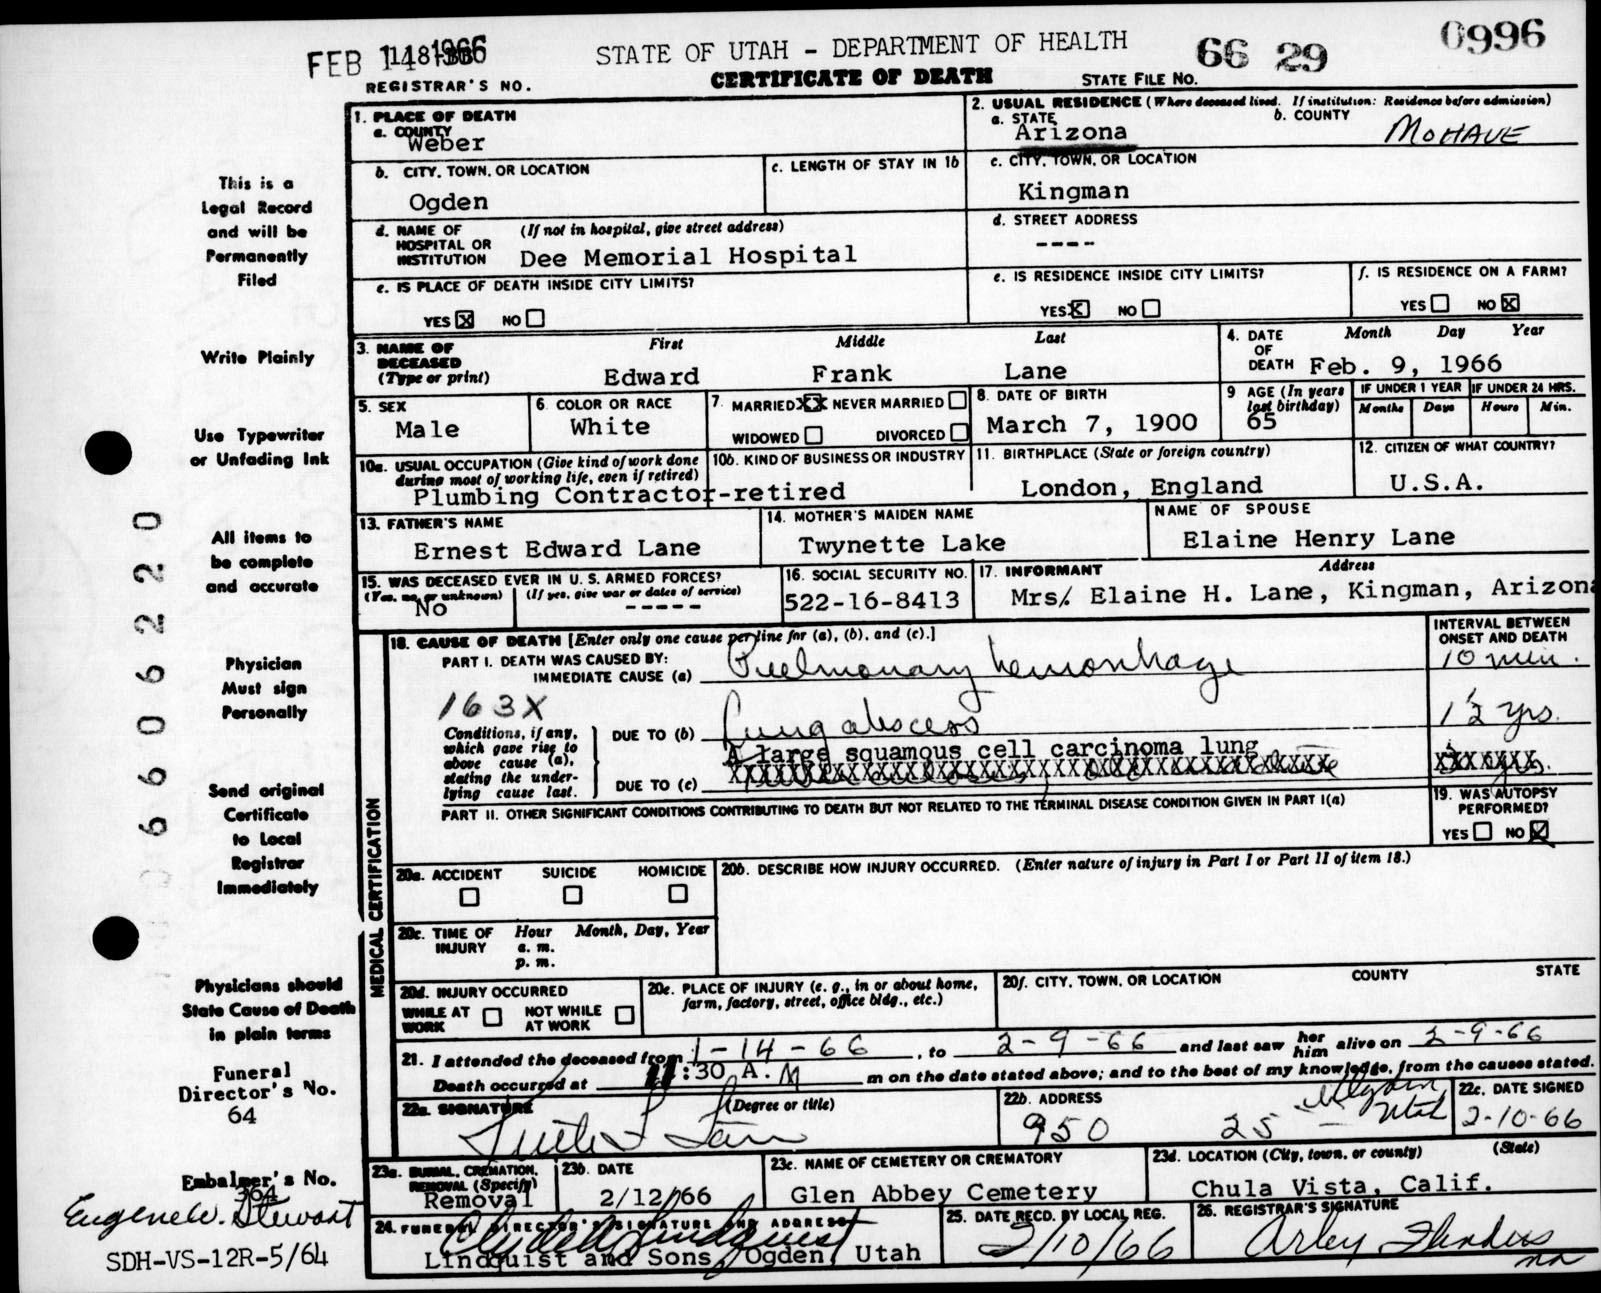 FEB 14 1966
STATE OF UTAH - DEPARTMENT OF HEALTH
66 29
0996
REGISTRAR'S NO.
CERTIFICATE OF DEATH
STATE FILE NO.
1. PLACE OF DEATH
a. COUNTY
Weber
2. USUAL RESIDENCE (Where deceased lived. If institution: Residence before admission)
a. STATE
Arizona
b. COUNTY
MOHAVE
b. CITY, TOWN, OR LOCATION
Ogden
c. LENGTH OF STAY IN 1b
c. CITY, TOWN, OR LOCATION
Kingman
d. NAME OF HOSPITAL OR INSTITUTION
(If not in hospital, give street address)
Dee Memorial Hospital
d. STREET ADDRESS
----
e. IS PLACE OF DEATH INSIDE CITY LIMITS?
YES X NO
e. IS RESIDENCE INSIDE CITY LIMITS?
YES X NO
f. IS RESIDENCE ON A FARM?
YES NO X
3. NAME OF DECEASED (Type or print)
First Middle Last
Edward Frank Lane
4. DATE OF DEATH
Month Day Year
Feb. 9, 1966
5. SEX
Male
6. COLOR OR RACE
White
7. MARRIED XX NEVER MARRIED
WIDOWED DIVORCED
8. DATE OF BIRTH
March 7, 1900
9 AGE (In years last birthday)
65
IF UNDER 1 YEAR
Months Days
IF UNDER 24 HRS.
Hours Min.
10a. USUAL OCCUPATION (Give kind of work done during most of working life, even if retired)
10b. KIND OF BUSINESS OR INDUSTRY
Plumbing Contractor-retired
11. BIRTHPLACE (State or foreign country)
London, England
12. CITIZEN OF WHAT COUNTRY?
U.S.A.
13. FATHER'S NAME
Ernest Edward Lane
14. MOTHER'S MAIDEN NAME
Twynette Lake
NAME OF SPOUSE
Elaine Henry Lane
15. WAS DECEASED EVER IN U. S. ARMED FORCES?
(Yes, no, or unknown) (If yes, give war or dates of service)
No -----
16. SOCIAL SECURITY NO.
522-16-8413
17. INFORMANT Address
Mrs. Elaine H. Lane, Kingman, Arizona
MEDICAL CERTIFICATION
18. CAUSE OF DEATH [Enter only one cause per line for (a), (b), and (c).]
INTERVAL BETWEEN ONSET AND DEATH
PART I. DEATH WAS CAUSED BY:
IMMEDIATE CAUSE (a)
Pulmonary hemorrhage
10 min.
163X
Conditions, if any, which gave rise to above cause (a), stating the underlying cause last.
DUE TO (b)
Lung abscess
1 1/2 yrs.
A large squamous cell carcinoma lung
DUE TO (c)
PART II. OTHER SIGNIFICANT CONDITIONS CONTRIBUTING TO DEATH BUT NOT RELATED TO THE TERMINAL DISEASE CONDITION GIVEN IN PART I(a)
19. WAS AUTOPSY PERFORMED?
YES NO X
20a. ACCIDENT SUICIDE HOMICIDE
20b. DESCRIBE HOW INJURY OCCURRED. (Enter nature of injury in Part I or Part II of item 18.)
20c. TIME OF INJURY
Hour Month, Day, Year
a. m.
p. m.
20d. INJURY OCCURRED
WHILE AT WORK NOT WHILE AT WORK
20e. PLACE OF INJURY (e. g., in or about home, farm, factory, street, office bldg., etc.)
20f. CITY, TOWN, OR LOCATION COUNTY STATE
21. I attended the deceased from 1-14-66, to 2-9-66 and last saw her him alive on 2-9-66
Death occurred at 11:30 A.M m on the date stated above; and to the best of my knowledge, from the causes stated.
22a. SIGNATURE (Degree or title)
22b. ADDRESS
950 25 - Ogden Utah
22c. DATE SIGNED
2-10-66
23a. BURIAL, CREMATION, REMOVAL (Specify)
Removal
23b. DATE
2/12/66
23c. NAME OF CEMETERY OR CREMATORY
Glen Abbey Cemetery
23d. LOCATION (City, town, or county) (State)
Chula Vista, Calif.
24. FUNERAL DIRECTOR'S SIGNATURE AND ADDRESS
Lindquist and Sons, Ogden, Utah
25. DATE RECD. BY LOCAL REG.
2/10/66
26. REGISTRAR'S SIGNATURE
This is a
Legal Record
and will be
Permanently
Filed
Write Plainly
Use Typewriter
or Unfading Ink
All items to
be complete
and accurate
Physician
Must sign
Personally
Send original
Certificate
to Local
Registrar
Immediately
Physicians should
State Cause of Death
in plain terms
Funeral
Director's No.
64
Embalmer's No.
364
Eugene W. Stewart
SDH-VS-12R-5/64